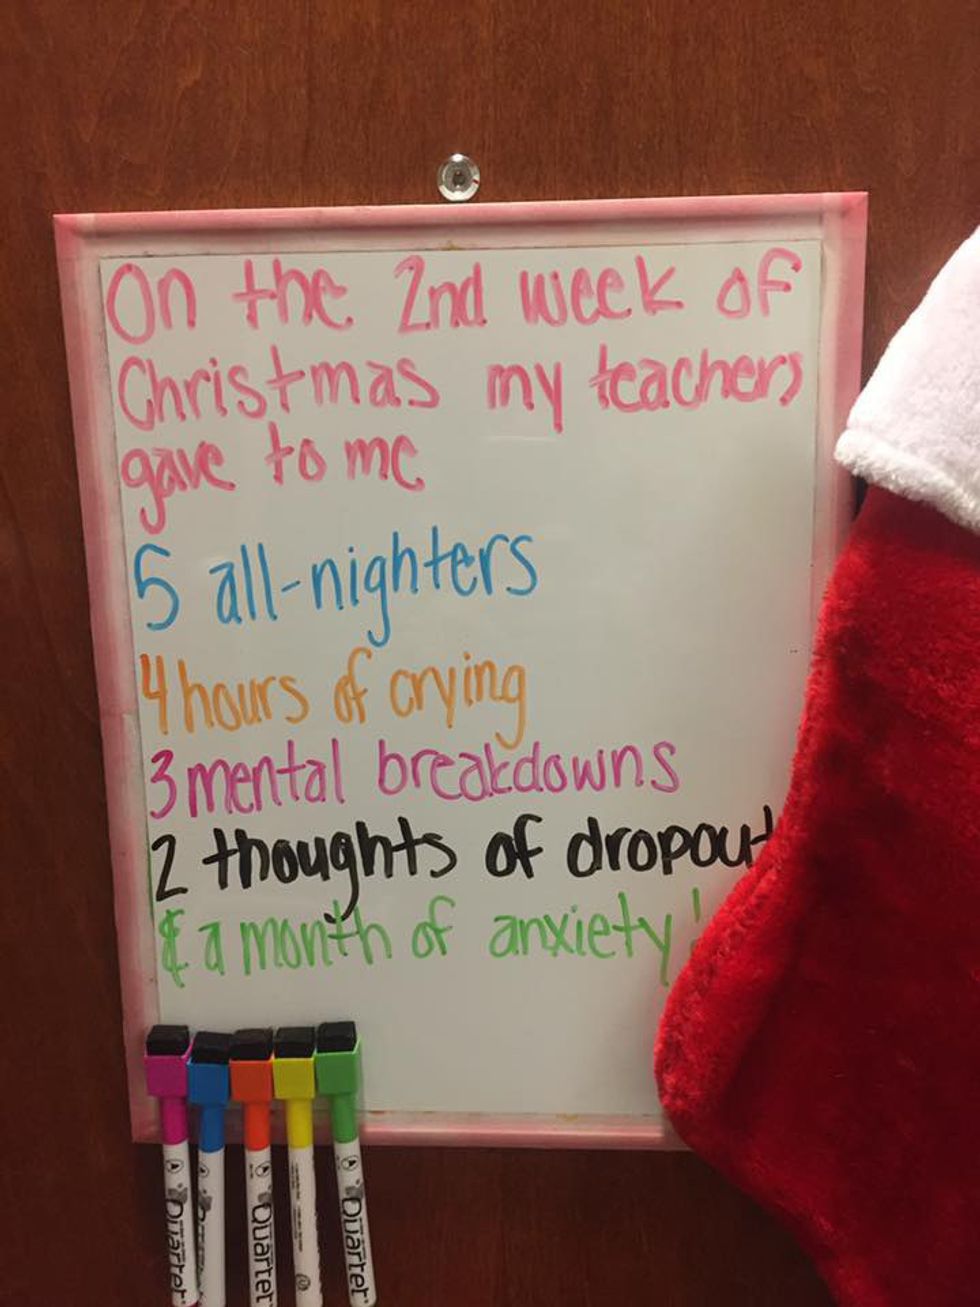 On the 2nd week of
Christmas my teachers
gave to me
5 all-nighters
4 hours of crying
3 mental breakdowns
2 thoughts of dropout
& a month of anxiety!
Quartet
Quartet
Quartet